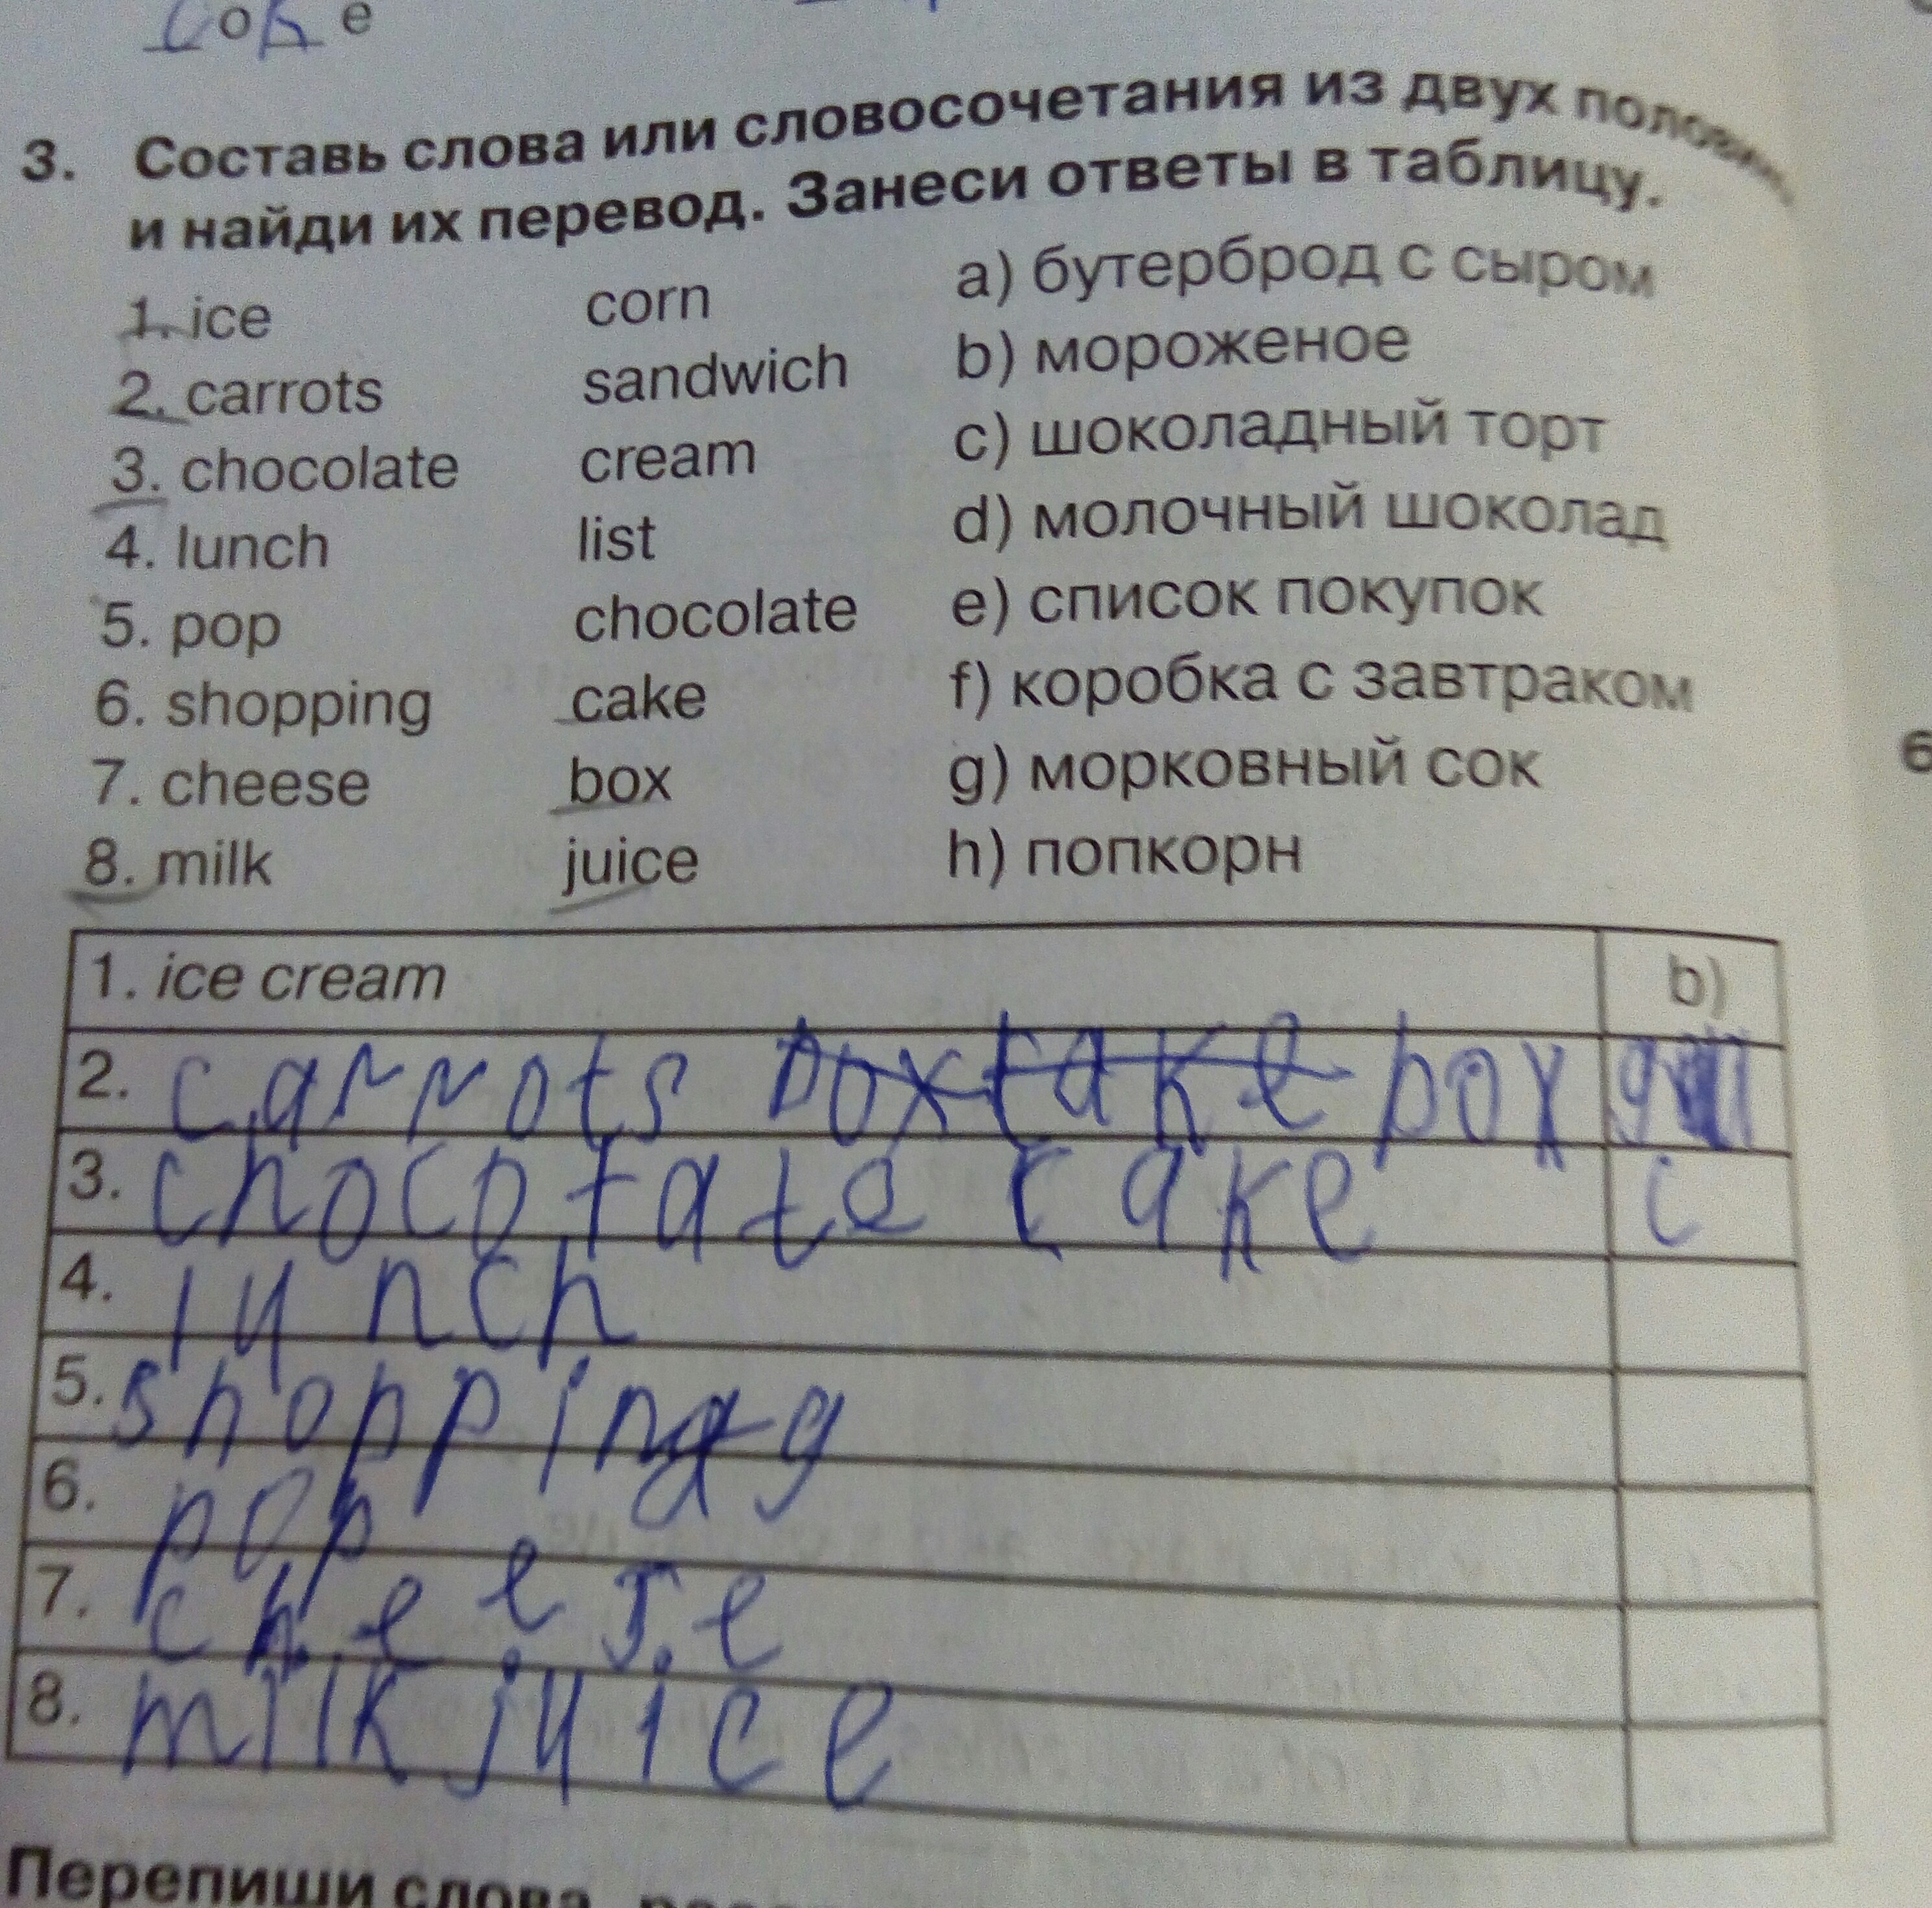 coke
3. Составь слова или словосочетания из двух половинок
и найди их перевод. Занеси ответы в таблицу.
1. ice corn a) бутерброд с сыром
2. carrots sandwich b) мороженое
3. chocolate cream c) шоколадный торт
4. lunch list d) молочный шоколад
5. pop chocolate e) список покупок
6. shopping cake f) коробка с завтраком
7. cheese box g) морковный сок
8. milk juice h) попкорн
6
1. ice cream b)
2. carrots box cake box g
3. chocolate cake c
4. lunch
5. shopping
6. pop
7. cheese
8. milk juice
Перепиши слова,